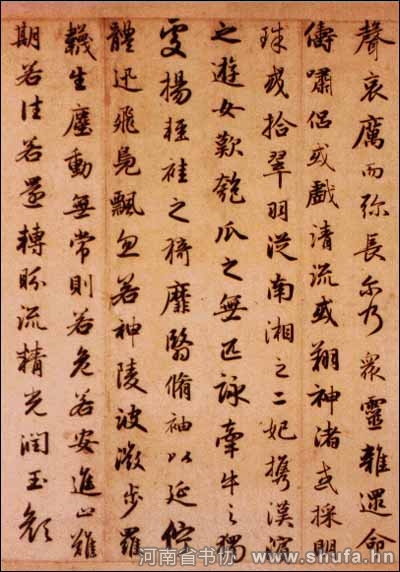 聲哀厲而弥長尔乃衆靈雜遝命
儔嘯侣或戲清流或翔神渚或採明
珠或拾翠羽從南湘之二妃攜漢濱
之遊女歎匏瓜之無匹詠牽牛之獨
處揚輕袿之猗靡翳脩袖以延佇
體迅飛鳧飄忽若神陵波微步羅
韈生塵動無常則若危若安進止難
期若往若還轉眄流精光潤玉顔
河南省书协 www.shufa.hn